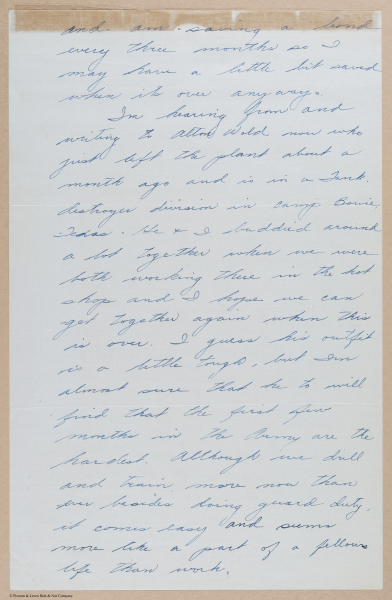 and am saving a bond
every three months so I
may have a little bit saved
when its over anyways.
Im hearing from and
writing to Alton Wold now who
just left the plant about a
month ago and is in a Tank
Destroyer division in camp Bowie,
Texas. He & I buddied around
a lot together when we were
both working there in the hot
shop and I hope we can
get together again when this
is over. I guess his outfit
is a little tough, but Im
almost sure that he to will
find that the first few
months in the Army are the
hardest. Although we drill
and train more now than
ever besides doing guard duty,
it comes easy and seems
more like a part of a fellows
life than work.
© Pioneer & Lewis Bolt & Nut Company